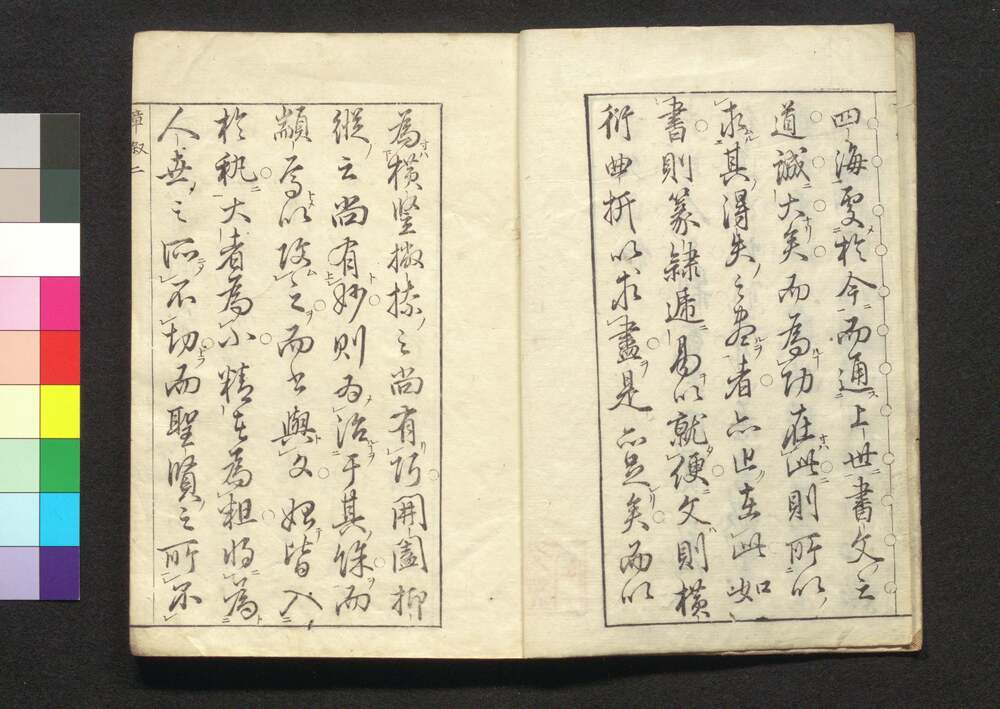 四海叓於今而通上世書文之
道誠大矣而為功在此則所以
求其得失之盡者亦止在此如
書則篆隸遞易以就便文則橫
衍曲折以求盡是亦足矣而以
為橫竪撇捺之尚有巧開闔抑
縱之尚有妙則為治于其餘而
顓焉以攻之而書與文始皆入
於執大者為小精者為粗將為
人世之所不切而聖賢之所不
章叙二